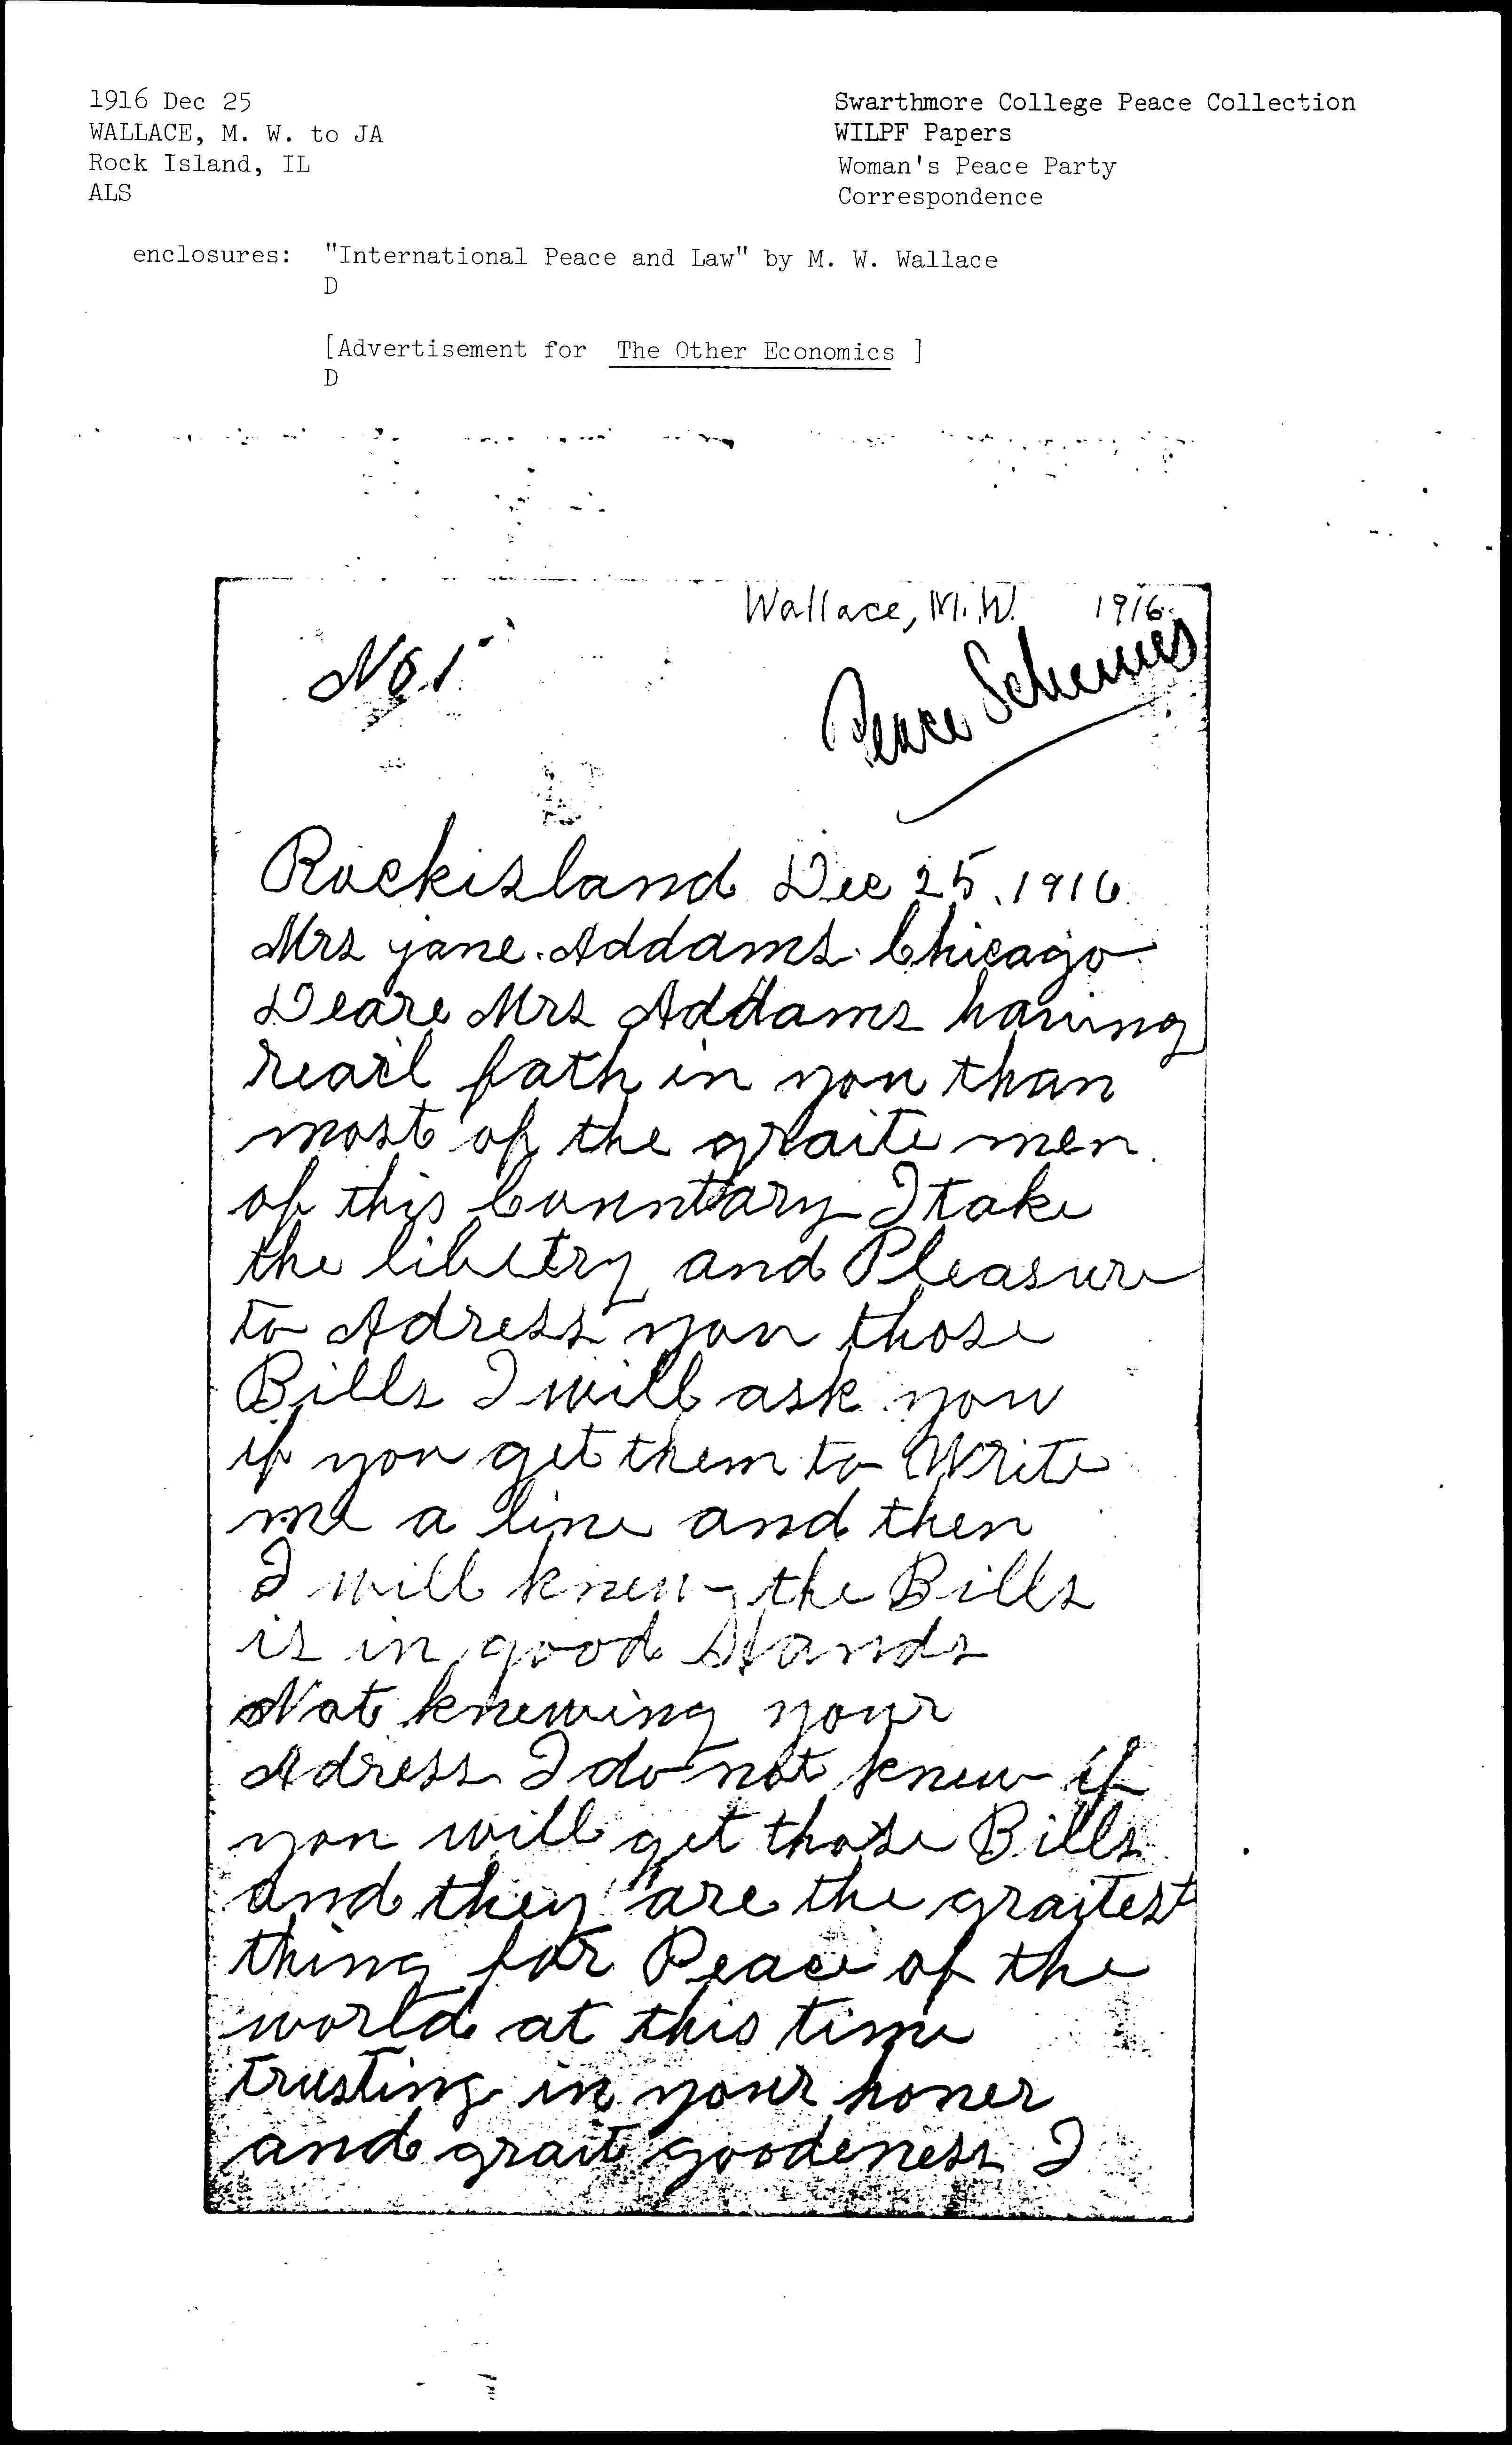 1916 Dec 25
WALLACE, M. W. to JA
Rock Island, IL
ALS
Swarthmore College Peace Collection
WILPF Papers
Woman's Peace Party
Correspondence
enclosures: "International Peace and Law" by M. W. Wallace
D
[Advertisement for The Other Economics ]
D
Wallace, M. W. 1916
No 1
Peace Schemes
Rockisland Dec 25. 1916
Mrs jane. Addams. Chicago
Deare Mrs Addams having
reail fath in you than
most of the graite men
of this Counntary I take
the libetry and Pleasure
to Adress you those
Bills I will ask you
if you get them to Write
me a line and then
I will knew the Bills
is in good Hands
Not knewing your
Adress I do not knew if
you will get those Bills
and they are the graitest
thing for Peace of the
world at this time
trusting in your honer
and grait goodeness I